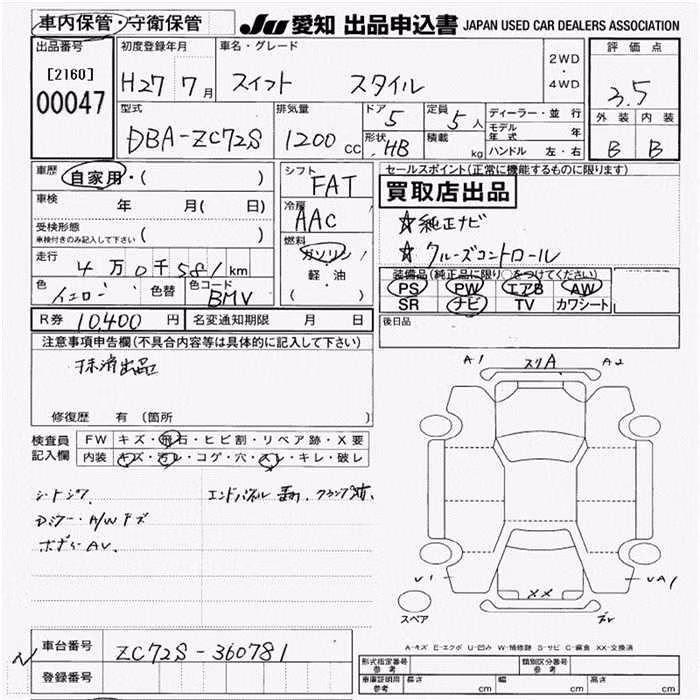 車内保管・守衛保管
JU 愛知 出品申込書 JAPAN USED CAR DEALERS ASSOCIATION
出品番号
[2160]
00047
初度登録年月
H27 7月
車名・グレード
スイフト スタイル
2WD
・
4WD
評価点
3.5
外装 内装
B B
型式
DBA-ZC72S
排気量
1200 CC
ドア
5
形状 HB
定員
5人
積載
kg
ディーラー・並行
モデル年式 年
ハンドル 左・右
車歴
自家用・( )
車検
年 月( 日)
受検形態
車検付きのみ記入して下さい ( )
走行
4万0千581km
色
イエロー
色替
色コード
BMV
シフト
FAT
冷房
AAC
燃料
ガソリン
軽・油
( ・ )
セールスポイント(正常に機能するものに限ります)
買取店出品
☆純正ナビ
☆クルーズコントロール
装備品(純正品に限り○をつけてください)
PS PW エアB AW
SR ナビ TV カワシート
後日品
R券 10,400円
名変通知期限 月 日
注意事項申告欄(不具合内容等は具体的に記入して下さい)
抹消出品
修復歴 有 (箇所 )
検査員
記入欄
FW キズ・飛石・ヒビ割・リペア跡・X要
内装 キズ・汚レ・コゲ・穴・スレ・キレ・破レ
シートシワ
Dミラー・A/Wキズ
ボディーAV.
エンドパネル クランプ痕.
A1 スリA A2
U1 XX UA1
スペア
A-キズ E-エクボ U-凹み W-補修跡 S-サビ C-腐食 XX-交換済
車台番号
ZC72S-360781
登録番号
形式指定番号
参考
類別区分番号
参考
車庫証明用
参考
長さ cm
幅 cm
高さ cm